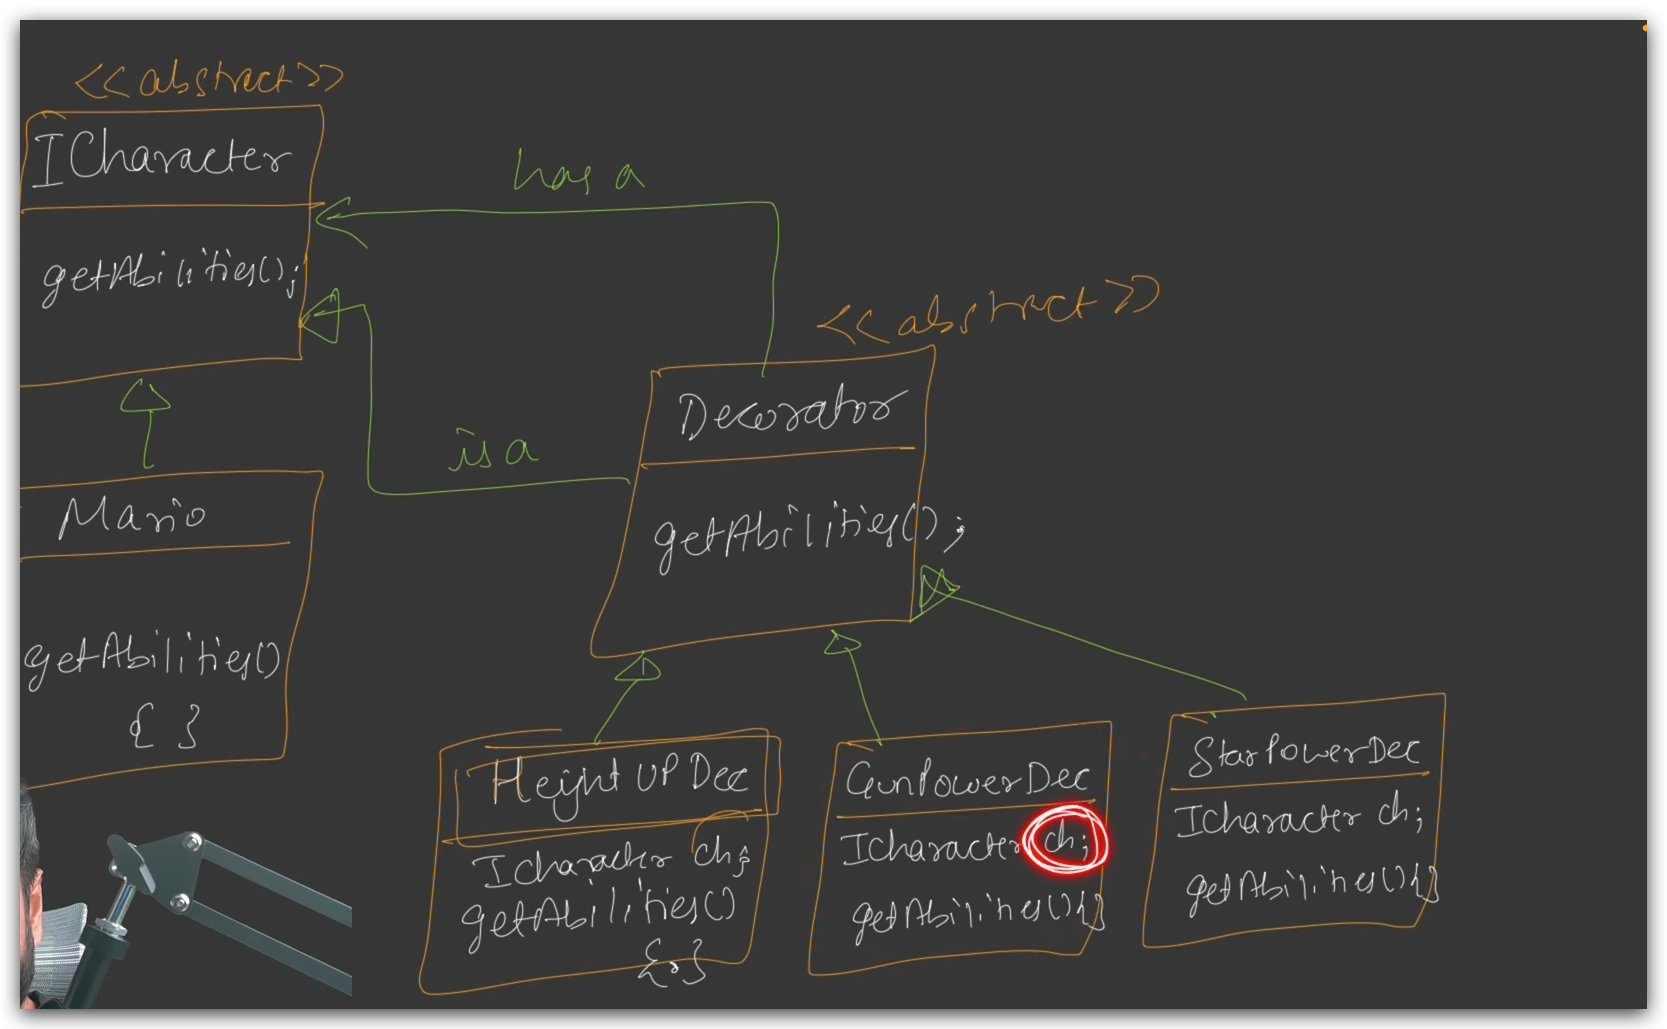 <<abstract>>
ICharacter
getAbilities();
has a
is a
Mario
getAbilities()
{ }
<<abstract>>
Decorator
getAbilities();
HeightUPDec
ICharacter ch;
getAbilities()
{ }
GunPowerDec
ICharacter ch;
getAbilities(){}
StarPowerDec
ICharacter ch;
getAbilities(){}